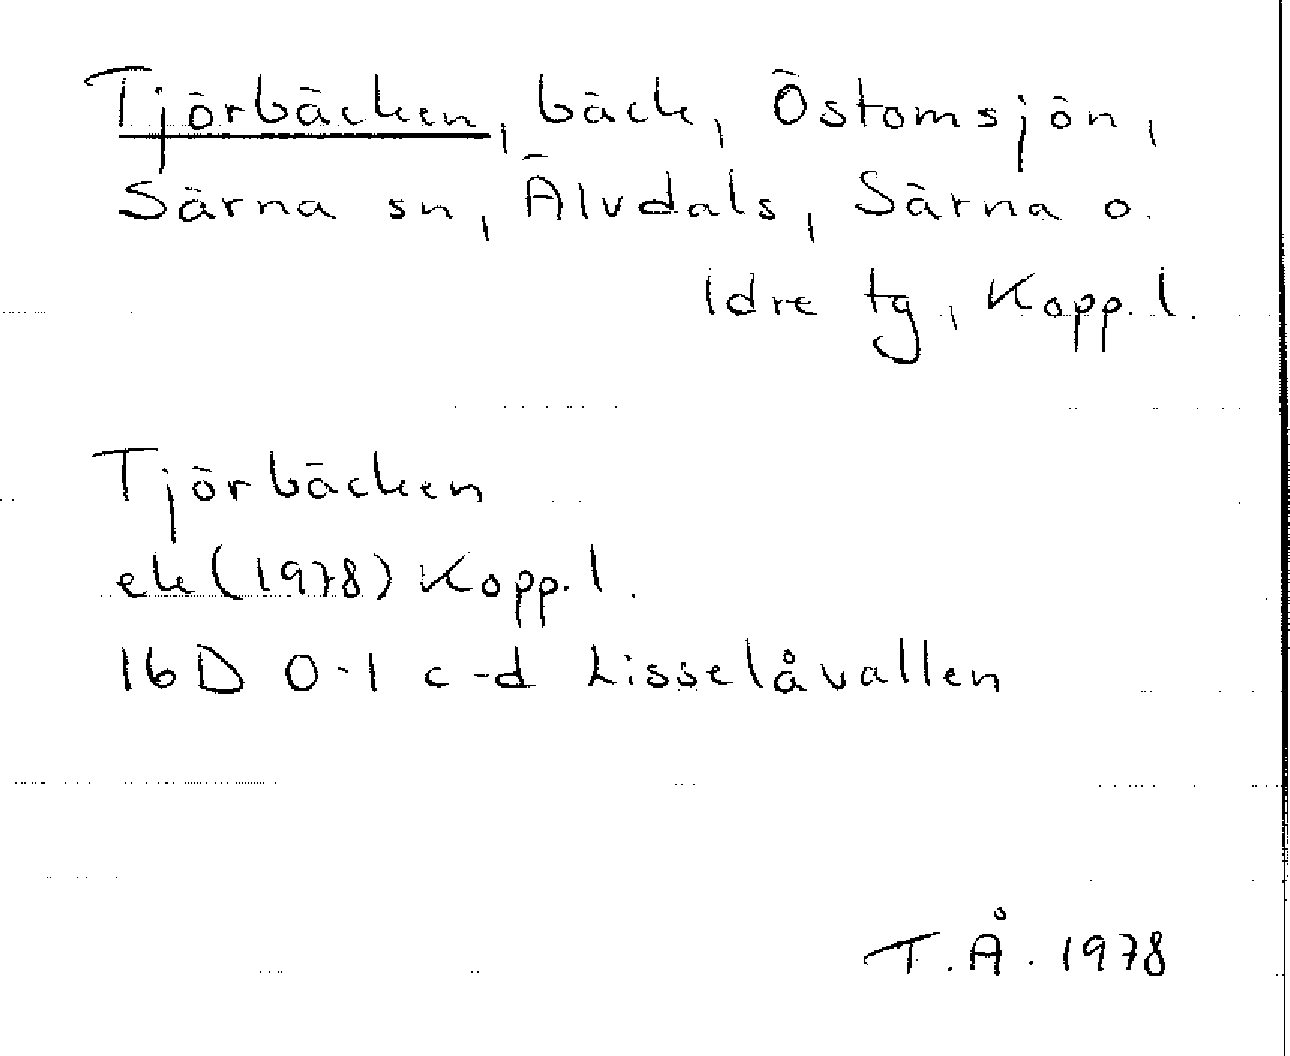 Tjörbäcken, bäck, Östomsjön,
Särna sn, Älvdals, Särna o.
Idre tg, Kopp. l.
Tjörbäcken
ek (1978) Kopp. l.
16D 0-1 c-d Lisselåvallen
T. Å. 1978